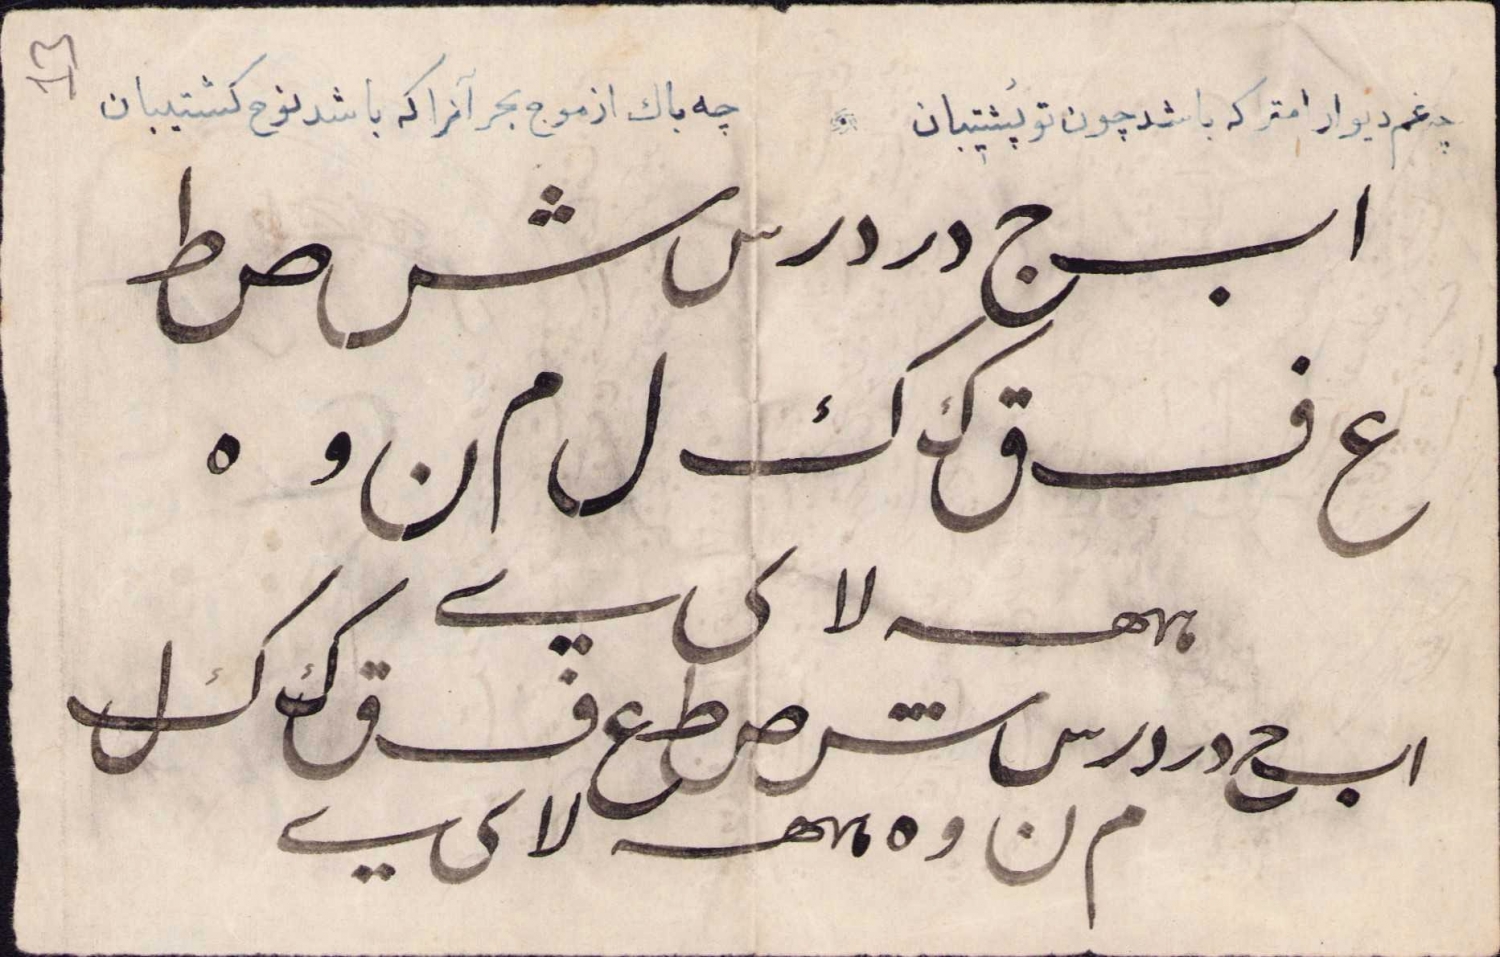 چه غم دیوار امت را که باشد چون تو پُشتیبان * چه باك از موج بحر آنرا که باشد نوح کشتیبان
ا ب ج د ر د ر س ش ص ط
ع ف ق ك ك ل م ن و ه
ھ لا ی ے
ا ب ج د ر د ر س ش ص ط ع ف ق ك ك ل
م ن و ه ھ لا ی ے